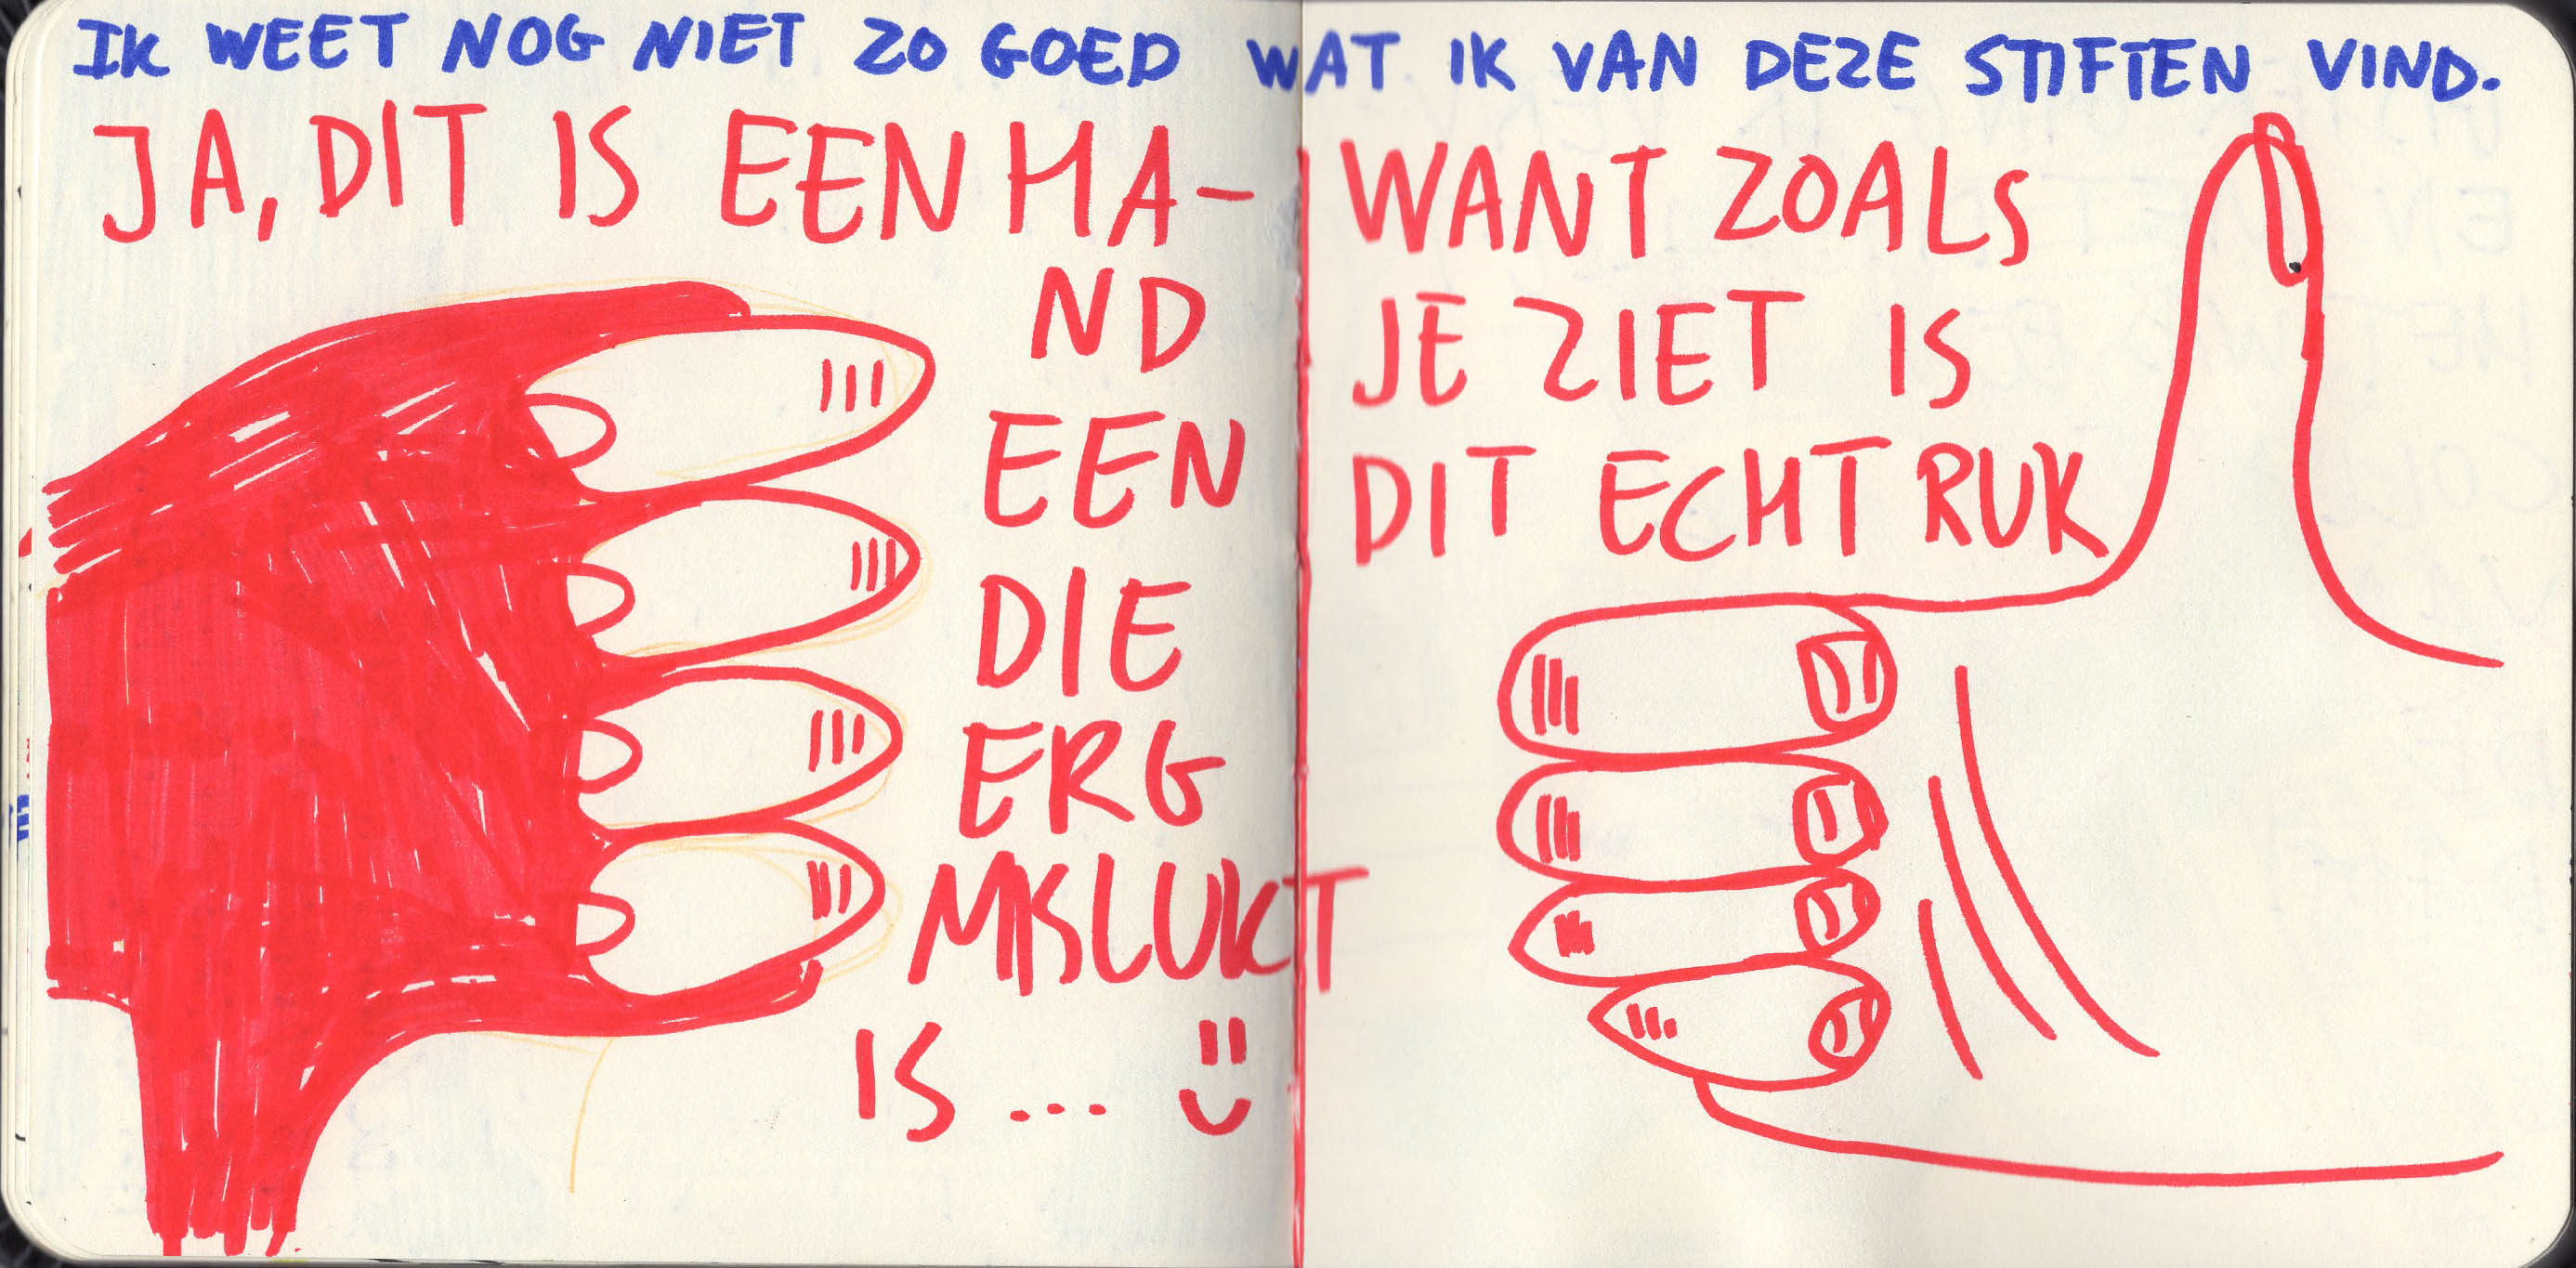 IK WEET NOG NIET ZO GOED WAT IK VAN DEZE STIFTEN VIND.
JA, DIT IS EEN HA-
ND
EEN
DIE
ERG
MISLUKT
IS ...
WANT ZOALS
JE ZIET IS
DIT ECHT RUK